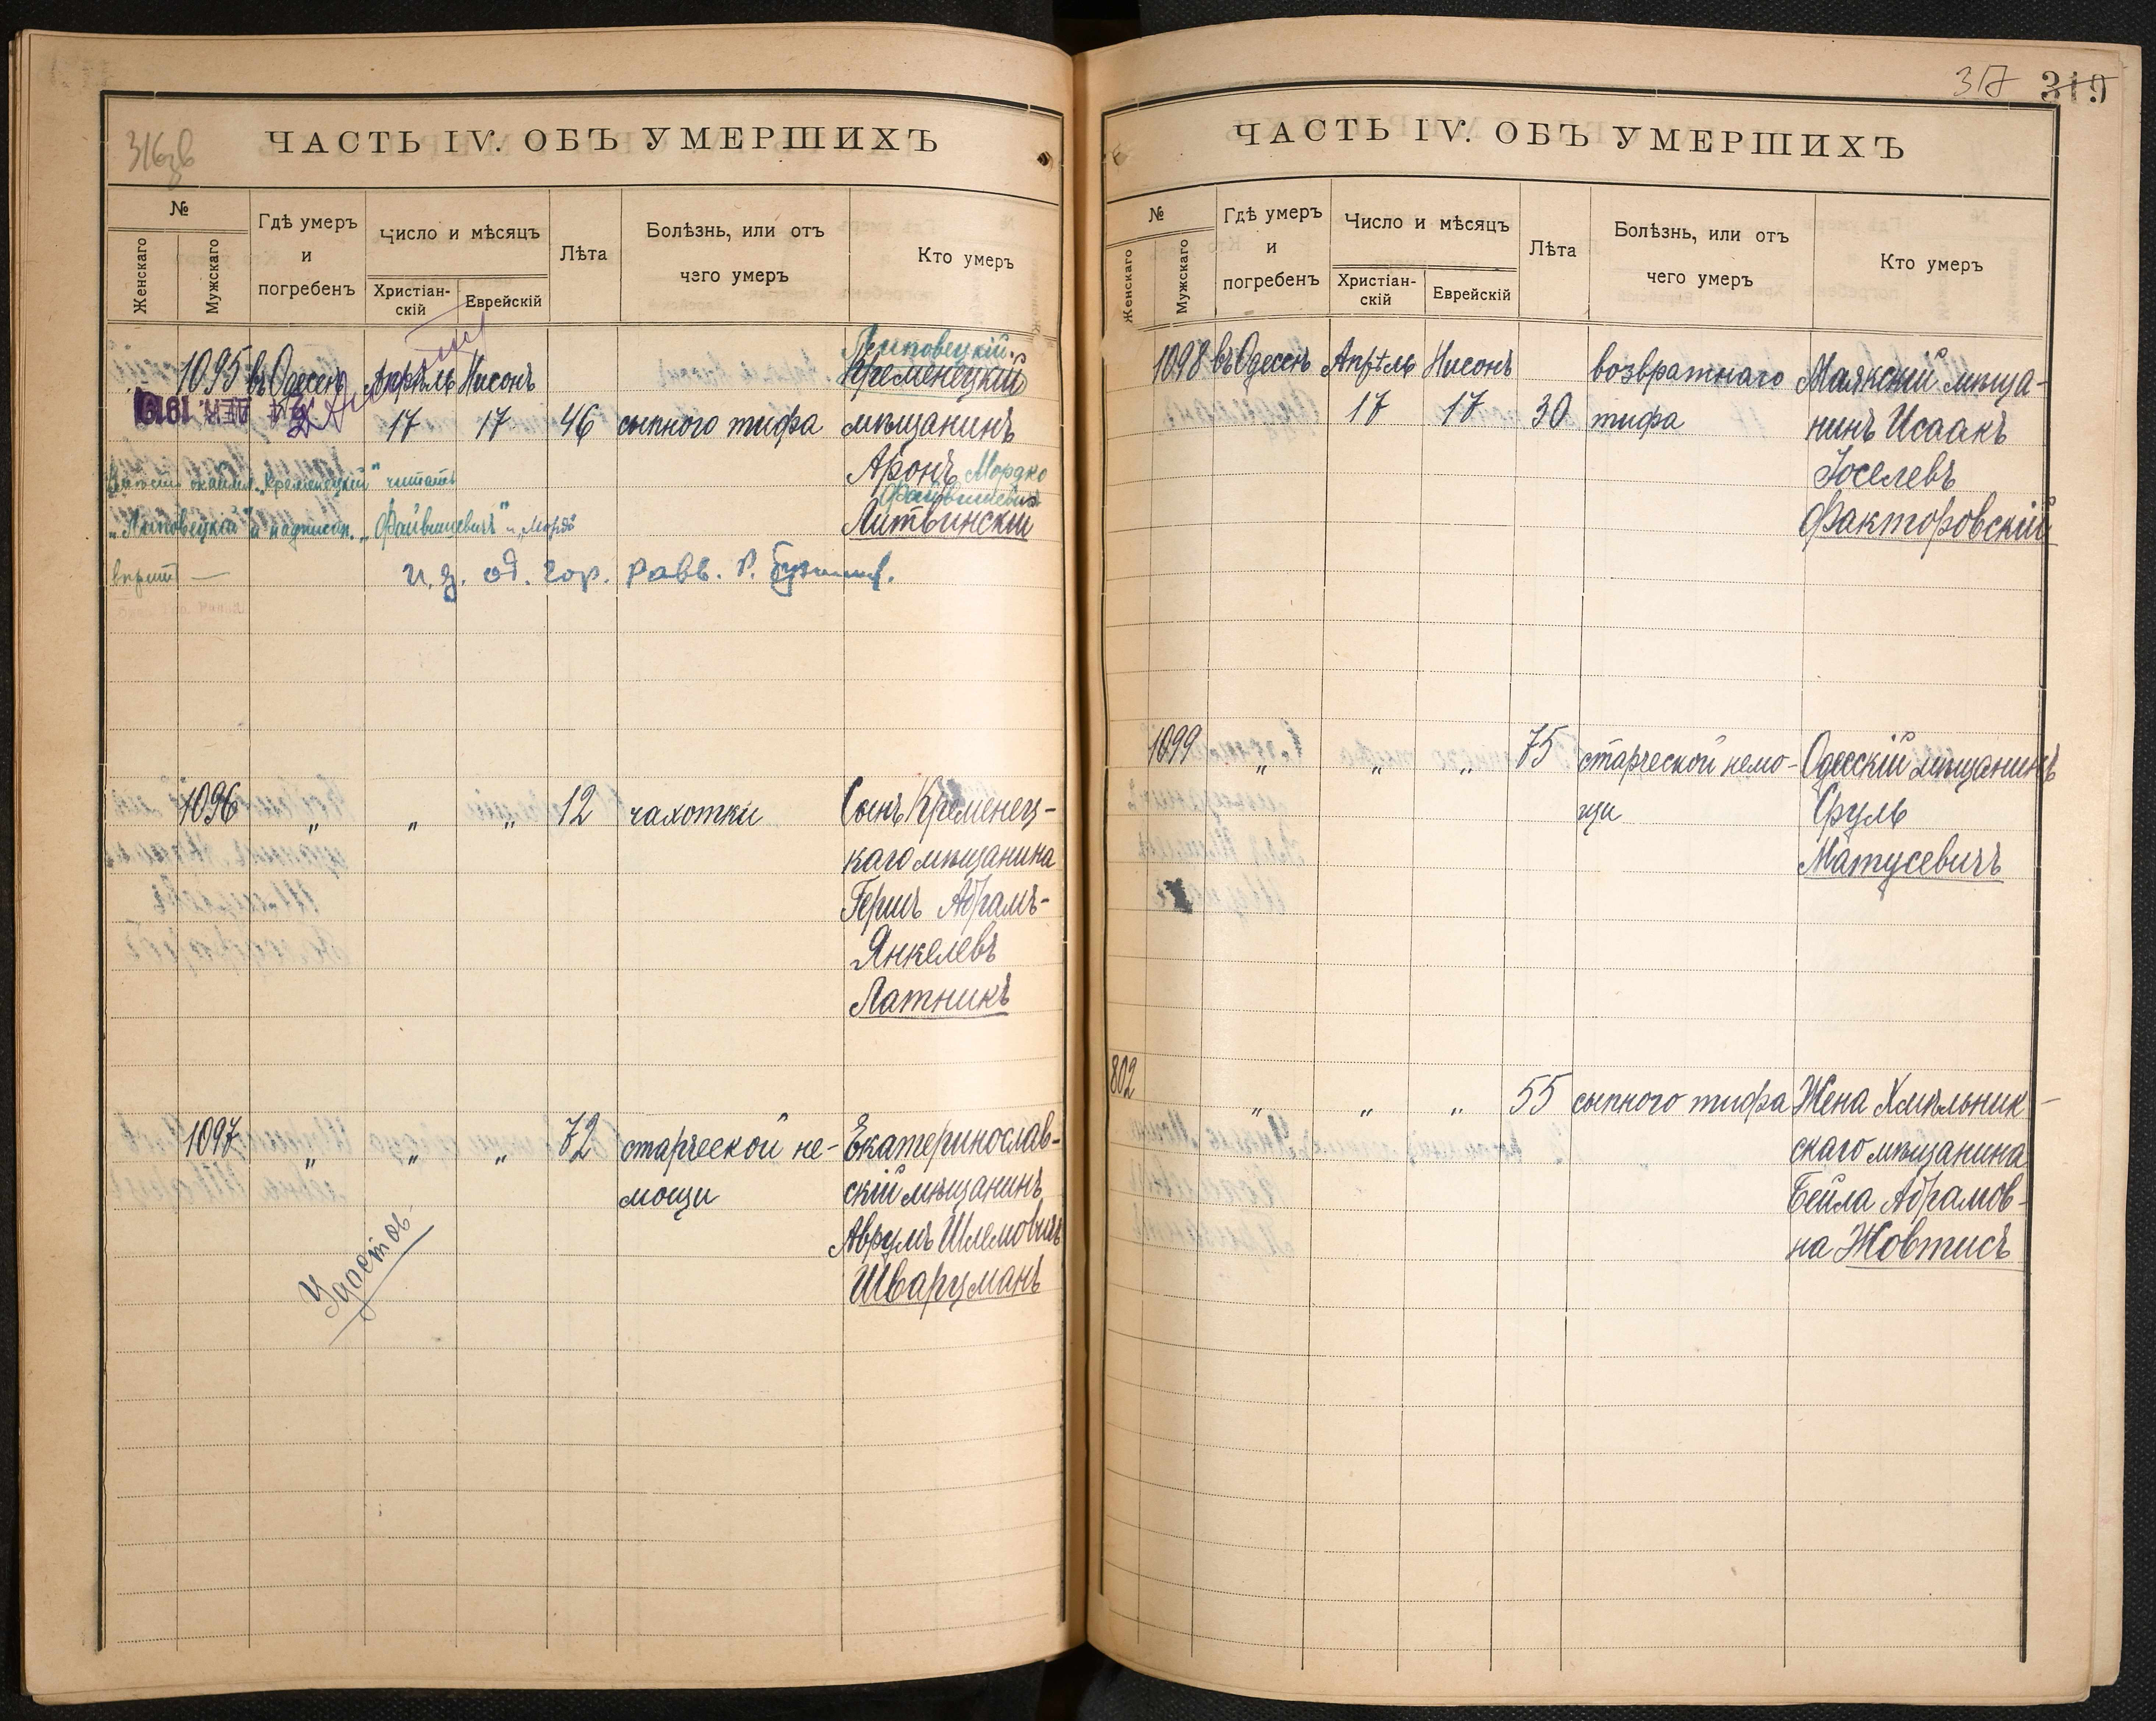 316зв
ЧАСТЬ IV. ОБЪ УМЕРШИХЪ
№
Женскаго
Мужскаго
Гдѣ умеръ
и
погребенъ
Число и мѣсяцъ
Христіан-
скій
Еврейскій
Лѣта
Болѣзнь, или отъ
чего умеръ
Кто умеръ
Липовецкій
1095 въ Одессѣ Апрѣль Нисонъ Кременецкій
ДЕК. 1919
17 17 46 сыпного тифа мѣщанинъ
Аронъ Мордко
Файвишевичъ
Литвинскій
"Кременецкій" читать
"Липовецкій" и надписан. "Файвишевичъ" и "Мордко"
вѣрить —
и. д. од. гор. равв. Р.
1096 „ „ „ 12 чахотки Сынъ Кременец-
каго мѣщанина
Гершъ Абрамъ-
Янкелевъ
Латникъ
1097 „ „ „ 72 старческой не- Екатеринослав-
мощи скій мѣщанинъ
Аврумъ Шлемовичъ
Шварцманъ
Удостов.
317 319
ЧАСТЬ IV. ОБЪ УМЕРШИХЪ
№
Женскаго
Мужскаго
Гдѣ умеръ
и
погребенъ
Число и мѣсяцъ
Христіан-
скій
Еврейскій
Лѣта
Болѣзнь, или отъ
чего умеръ
Кто умеръ
1098 въ Одессѣ Апрѣль Нисонъ возвратнаго Маякскій мѣща-
17 17 30 тифа нинъ Исаакъ
Іоселевъ
Факторовскій
1099 „ „ „ 75 старческой немо- Одесскій мѣщанинъ
щи Сруль
Матусевичъ
802 „ „ „ 55 сыпного тифа Жена Хмѣльник-
скаго мѣщанина
Бейла Абрамов-
на Жовтисъ